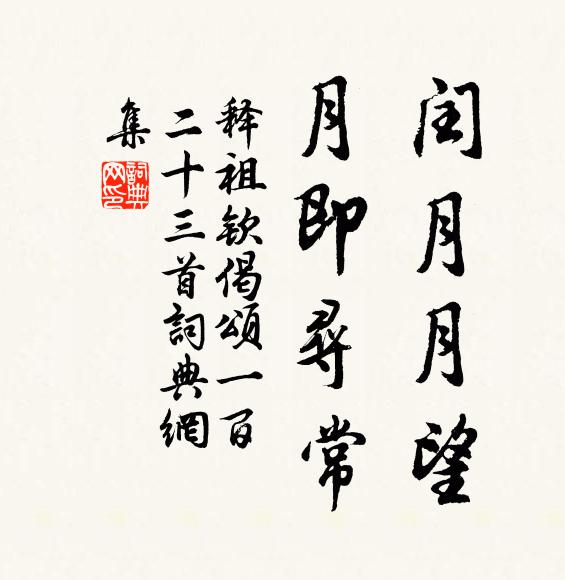 闰月月望
月即尋常
释祖钦偈頌一百
二十三首詞典網
集
詞典网印